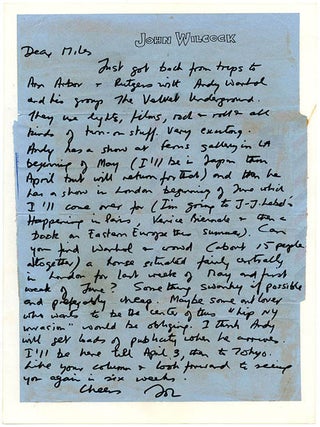 JOHN WILCOCK
Dear Miles
Just got back from trips to
Ann Arbor & Rutgers with Andy Warhol
and his group The Velvet Underground.
They use lights, films, rock & roll & all
kinds of turn-on stuff. Very exciting.
Andy has a show at Ferus gallery in LA
beginning of May (I'll be in Japan then
April but will return for that) and then he
has a show in London beginning of June which
I'll come over for (I'm going to J-J. Lebel's
Happening in Paris, Venice Biennale & then a
book on Eastern Europe then summer). Can
you find Warhol & crowd (about 15 people
altogether) a house situated fairly centrally
in London for last week of May and first
week of June? Something swanky if possible
and preferably cheap. Maybe some art lover
who wants to be the center of this "hip NY
invasion" would be obliging. I think Andy
will get loads of publicity when he arrives.
I'll be here till April 3, then to Tokyo.
Like your column & look forward to seeing
you again in six weeks.
Cheers